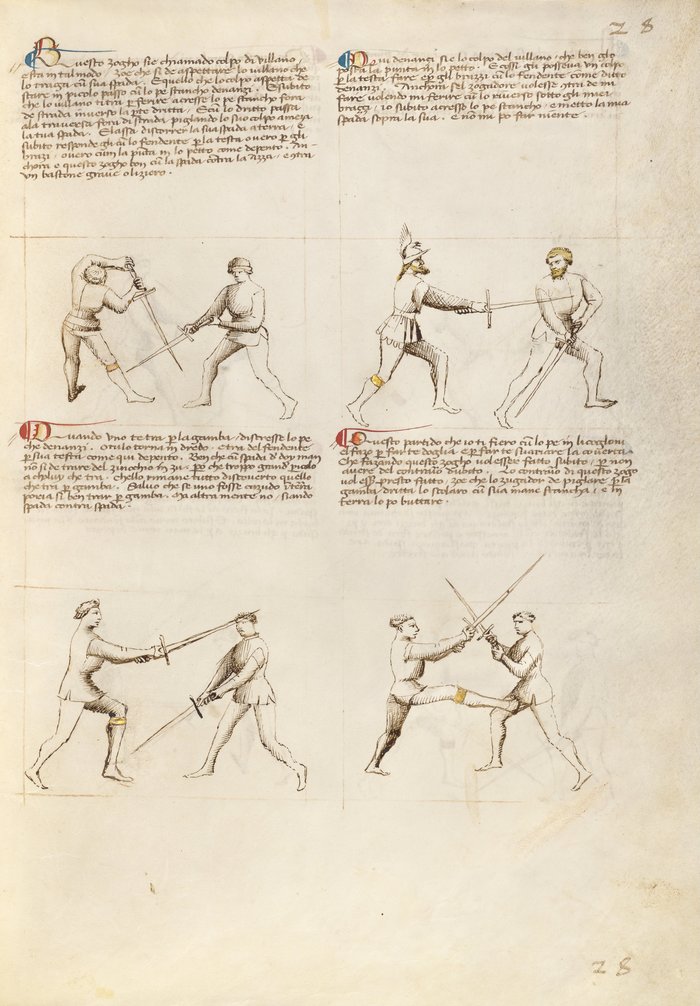 28
Questo zogho sie chiamado colpo di villano e
sta in tal modo, zoe che si de aspettare lo villano che
lo traga cum sua spada. E quello che lo colpo aspetta de
stare in picolo passo cum lo pe stancho denanzi. E subito
che lo villano ti tra per ferire acresse lo pe stancho fora
de strada inverso la parte dritta. E cum lo dritto passa
ala traversa fora di strada pigliando lo suo colpo a meza
la tua spada. E lassa discorrer la sua spada a terra, e
subito responde gli cum lo fendente per la testa overo per gli
brazi, overo cum la punta in lo petto come depento. An-
chora e questo zogho bon cum la spada contra la azza, e contra
un bastone grave o liziero.
Qui denanci sie lo colpo del villano, che ben glo
posta la punta in lo petto. E cossi gli posseva un colpo
per la testa fare e per gli brazzi cum lo fendente come ditto
denanzi. Anchora sel zogadore volesse contra de mi
fare volendo mi ferire cum lo riverso sotto gli miei
brazzi, io subito acresse lo pe stancho, e metto la mia
spada sopra la sua. E non mi po far niente.
Quando uno te tra per la gamba, discresse lo pe
che denanzi. O tu lo torna in dredo, e tra del fendente
per sua testa come qui depento. Ben che cum spada di doy man
non si de trare del zinochio in zu, per che troppo grand' picolo
a choluy che tra. Che lo rimane tutto discoverto quello
che tra per gamba. Salvo che se uno fosse cazudo in terra
poria si ben trar per gamba. Ma altra mente no, siando
spada contra spada.
Questo partido che io ti fiero cum lo pe in li cogloni
el fazo per farte doglia e per farte svariare la coverta
Che fazando questo zogho vol essere fatto subito, per non
avere del contrario dubito. Lo contrario di questo zogo
vol esser presto fatto, zoe che lo zugador de piglare per la
gamba dritta lo scolaro cum sua mane stancha, e in
terra lo po buttare.
28